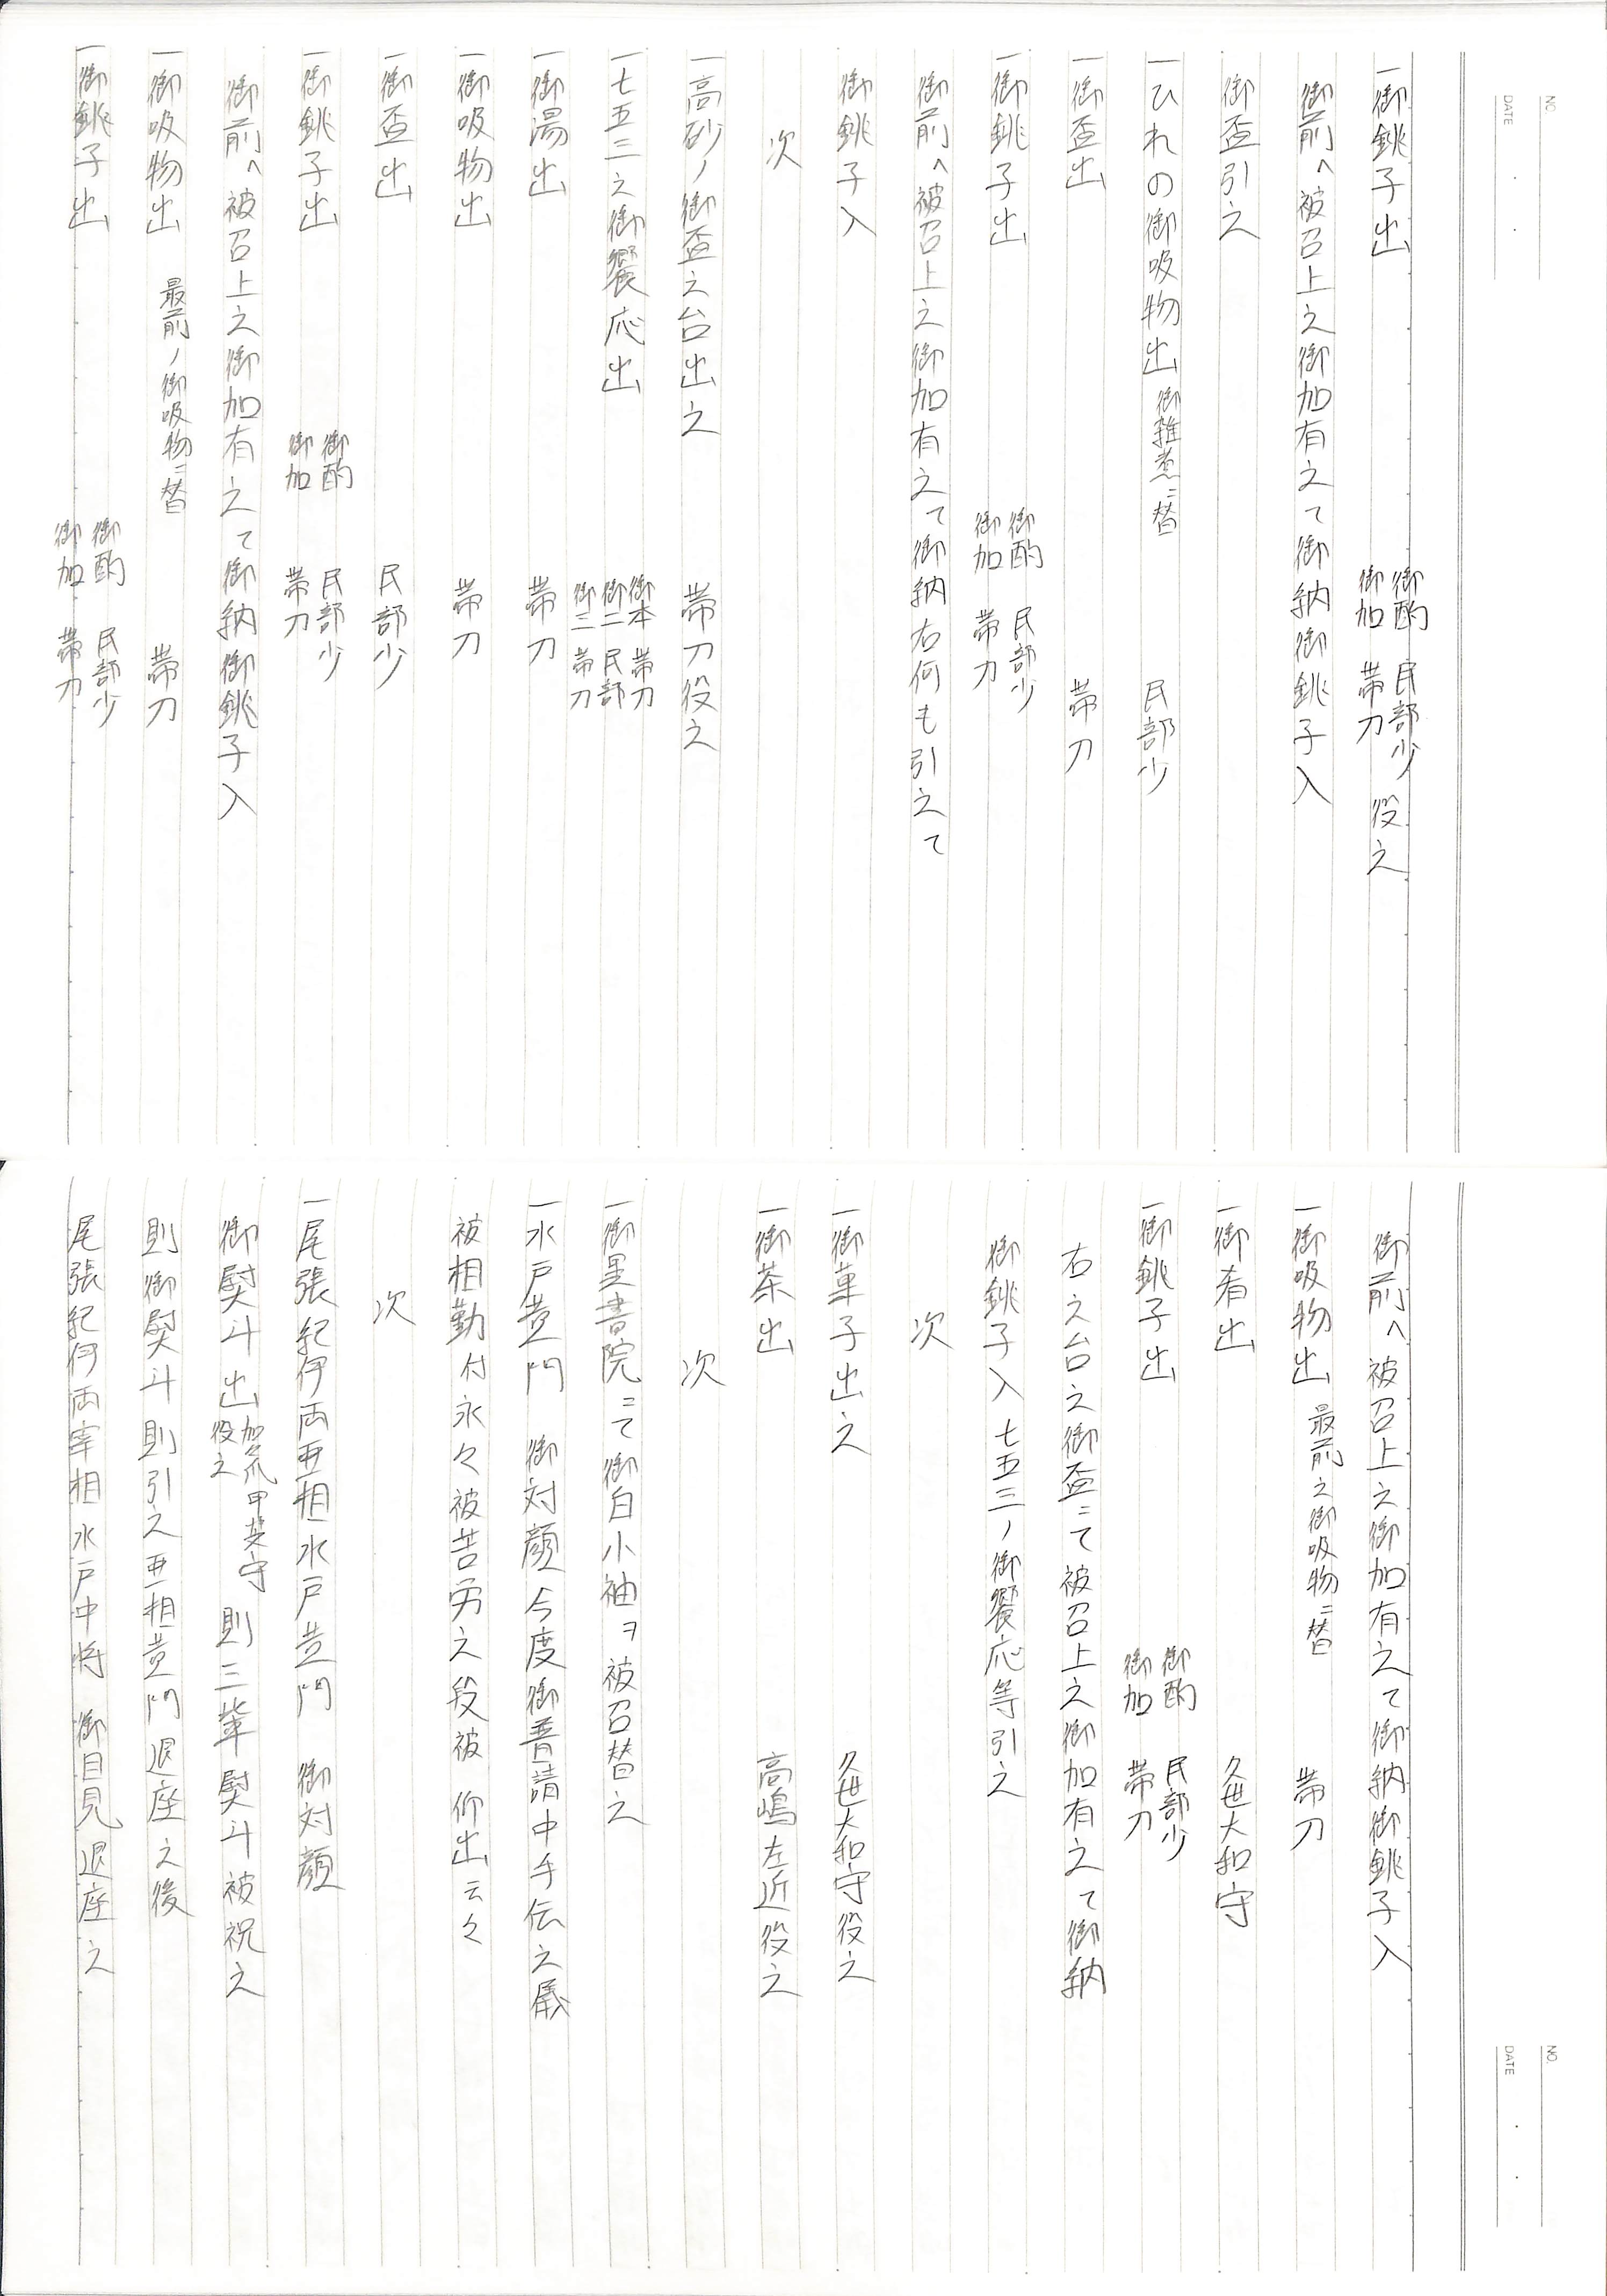 NO.
DATE
一御銚子出　御酌 民部少 御加 帯刀 役之
御前へ被召上之御加有之て御納御銚子入
御盃引之
一ひれの御吸物出 御雑煮ニ替　民部少
一御盃出　帯刀
一御銚子出　御酌 民部少 御加 帯刀
御前へ被召上之御加有之て御納右何も引之て
御銚子入
次
一高砂ノ御盃之台出之　帯刀役之
一七五三之御饗応出　御本 帯刀 御二 民部 御三 帯刀
一御湯出　帯刀
一御吸物出　帯刀
一御盃出　民部少
一御銚子出　御酌 民部少 御加 帯刀
御前へ被召上之御加有之て御納御銚子入
一御吸物出 最前ノ御吸物ニ替　帯刀
一御銚子出　御酌 民部少 御加 帯刀
NO.
DATE
御前へ被召上之御加有之て御納御銚子入
一御吸物出 最前之御吸物ニ替　帯刀
一御肴出　久世大和守
一御銚子出　御酌 民部少 御加 帯刀
右之台之御盃ニて被召上之御加有之て御納
御銚子入七五三ノ御饗応等引之
次
一御菓子出之　久世大和守役之
一御茶出　高嶋左近役之
次
一御黒書院ニて御白小袖ヲ被召替之
一水戸黄門　御対顔今度御普請中手伝之儀
被相勤付永々被苦労之段被　仰出云々
次
一尾張紀伊両亜相水戸黄門　御対顔
御熨斗出 加々爪甲斐守役之　則三輩熨斗被祝之
則御熨斗則引之亜相黄門退座之後
尾張紀伊両宰相水戸中将　御目見退座之